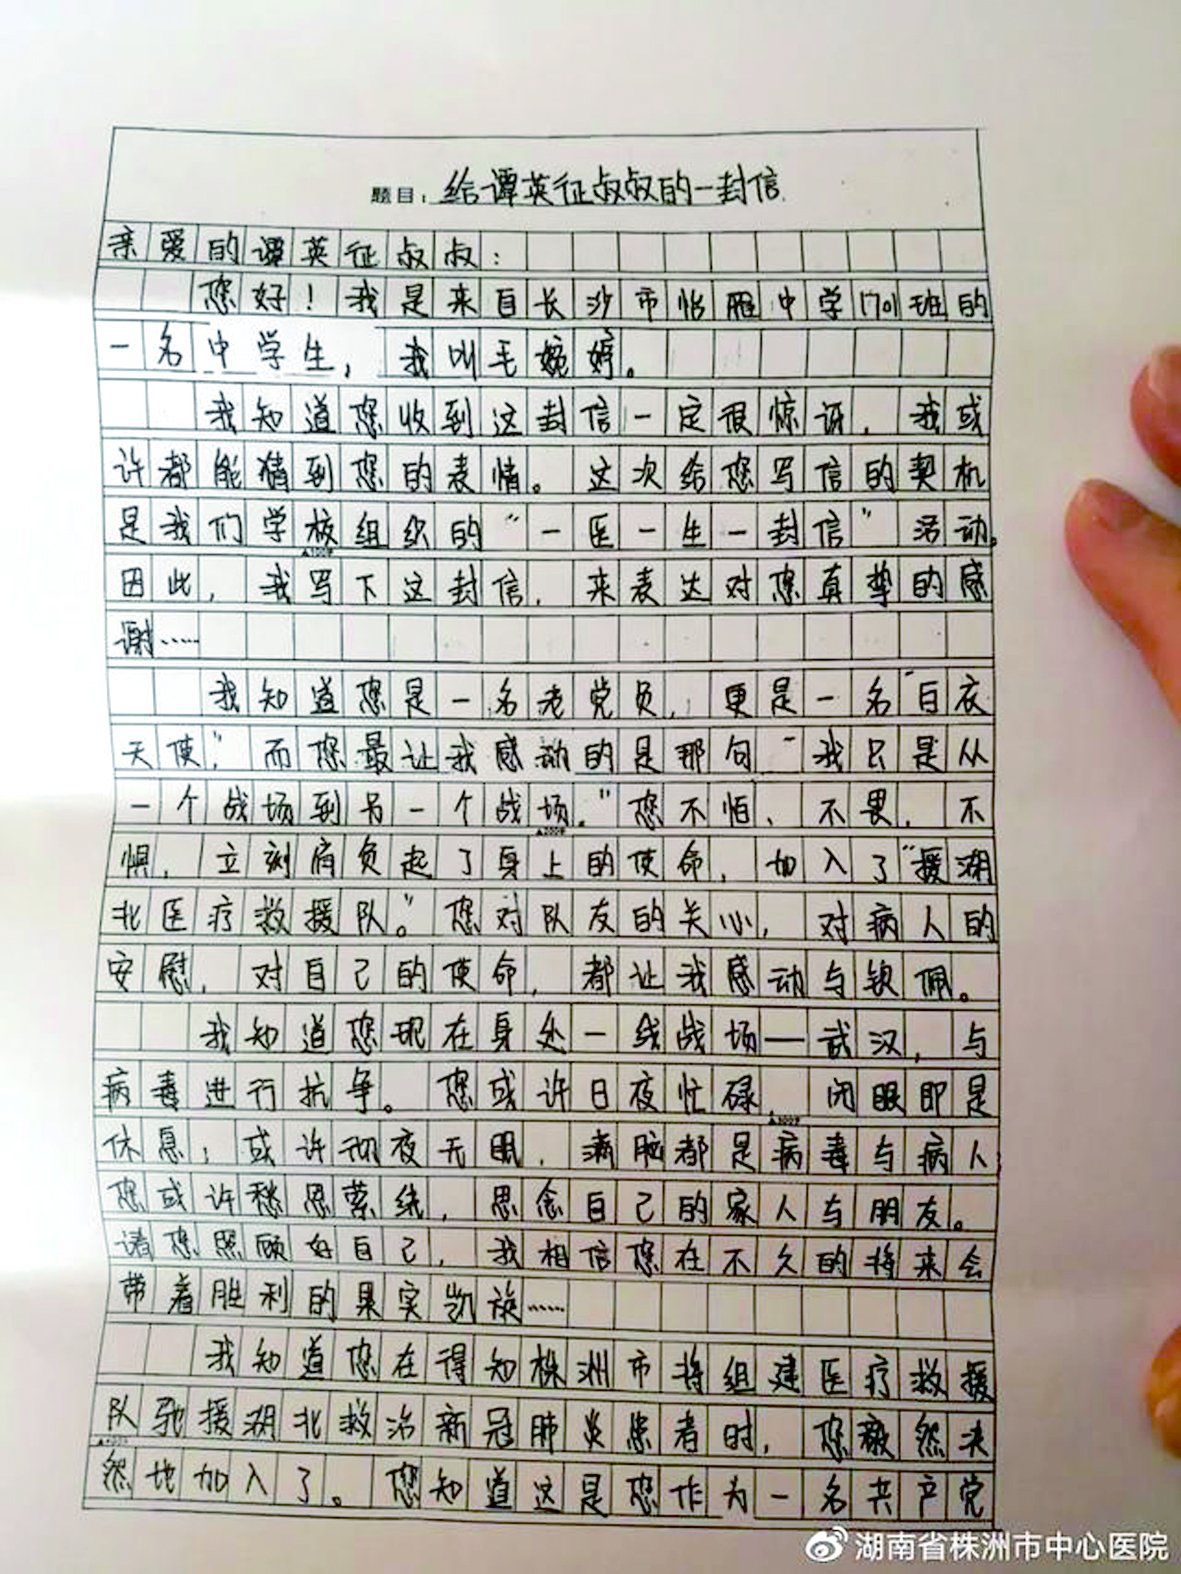 题目：给谭英征叔叔的一封信
亲爱的谭英征叔叔：
您好！我是来自长沙市怡雅中学1701班的
一名中学生，我叫毛婉婷。
我知道您收到这封信一定很惊讶，我或
许都能猜到您的表情。这次给您写信的契机
是我们学校组织的“一医一生一封信”活动。
▲100字
因此，我写下这封信，来表达对您真挚的感
谢……
我知道您是一名老党员，更是一名“白衣
天使”，而您最让我感动的是那句“我只是从
一个战场到另一个战场。”您不怕、不畏、不
▲200字
惧，立刻肩负起了身上的使命，加入了“援湖
北医疗救援队。”您对队友的关心，对病人的
安慰，对自己的使命，都让我感动与钦佩。
我知道您现在身处一线战场——武汉，与
病毒进行抗争。您或许日夜忙碌，闭眼即是
▲300字
休息；或许彻夜无眠，满脑都是病毒与病人；
您或许愁思萦绕，思念自己的家人与朋友。
请您照顾好自己，我相信您在不久的将来会
带着胜利的果实凯旋……
我知道您在得知株洲市将组建医疗救援
队驰援湖北救治新冠肺炎患者时，您毅然决
▲400字
然地加入了。您知道这是您作为一名共产党
湖南省株洲市中心医院